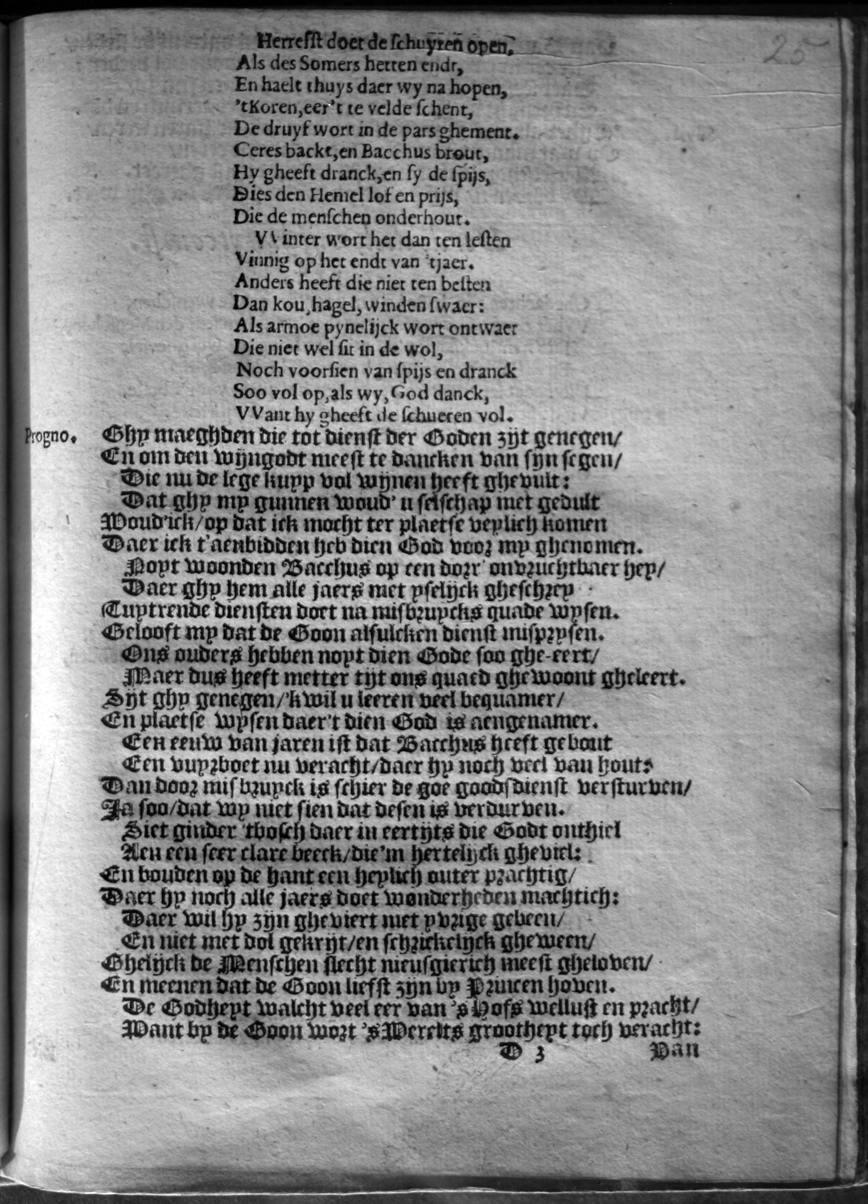 25
Herrefst doet de schuyren open,
Als des Somers hetten endt,
En haelt thuys daer wy na hopen,
'tKoren, eer't te velde schent,
De druyf wort in de pars ghement.
Ceres backt, en Bacchus brout,
Hy gheeft dranck, en sy de spijs,
Dies den Hemel lof en prijs,
Die de menschen onderhout.
VVinter wort het dan ten lesten
Vinnig op het endt van 'tjaer.
Anders heeft die niet ten besten
Dan kou, hagel, winden swaer:
Als armoe pynelijck wort ontwaer
Die niet wel sit in de wol,
Noch voorsien van spijs en dranck
Soo vol op, als wy, God danck,
VVant hy gheeft de schueren vol.
Progno. Ghy maeghden die tot dienst der Goden zijt genegen/
En om den wijngodt meest te dancken van sijn segen/
Die nu de lege kuyp vol wijnen heeft ghevult:
Dat ghy my gunnen woud' u selschap met gedult
Woud'ick/op dat ick mocht ter plaetse veylich komen
Daer ick t'aenbidden heb dien God voor my ghenomen.
Noyt woonden Bacchus op een dorr' onvruchtbaer hey/
Daer ghy hem alle jaers met yselijck gheschrey
Tuytrende diensten doet na misbruycks quade wysen.
Gelooft my dat de Goon alsulcken dienst misprysen.
Ons ouders hebben noyt dien Gode soo ghe-eert/
Maer dus heeft metter tijt ons quaed ghewoont gheleert.
Sijt ghy genegen/'kwil u leeren veel bequamer/
En plaetse wysen daer't dien God is aengenamer.
Een eeuw van jaren ist dat Bacchus heeft gebout
Een vuyrboet nu veracht/daer hy noch veel van hout:
Dan door misbruyck is schier de goe goodsdienst versturven/
Ja soo/dat wy niet sien dat desen is verdurven.
Siet ginder 'tbosch daer in eertijts die Godt onthiel
Aen een seer clare beeck/die'm hertelijck gheviel:
En bouden op de hant een heylich outer prachtig/
Daer hy noch alle jaers doet wonderheden machtich:
Daer wil hy zijn gheviert met yvrige gebeen/
En niet met dol gekrijt/en schrickelijck gheween/
Ghelijck de Menschen slecht nieusgierich meest gheloven/
En meenen dat de Goon liefst zijn by Princen hoven.
De Godheyt walcht veel eer van 'sHofs wellust en pracht/
Want by de Goon wort 'sWerelts grootheyt toch veracht:
D 3 Van